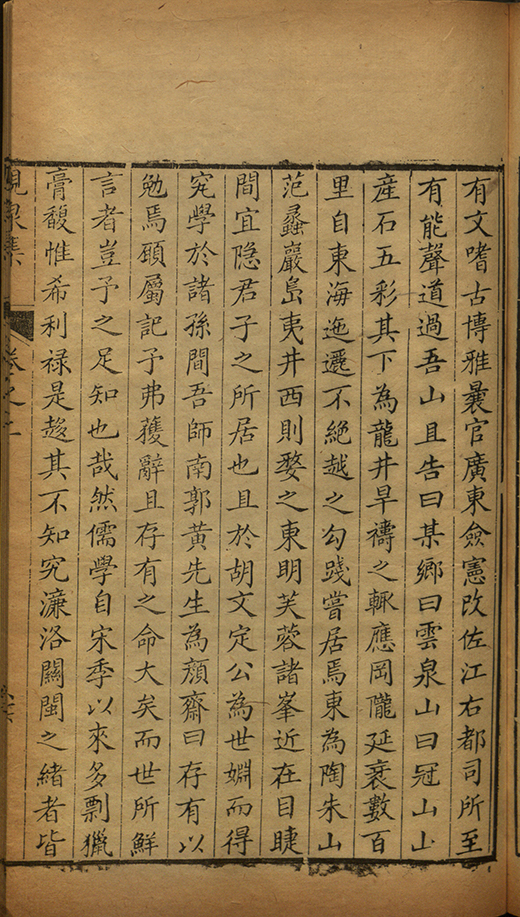 有文嗜古博雅曩官廣東僉憲改佐江右都司所至
有能聲道過吾山且告曰某鄉曰雲泉山曰冠山山
産石五彩其下為龍井旱禱之輒應岡隴延袤數百
里自東海迤邐不絕越之勾踐嘗居焉東為陶朱山
范蠡巖島夷井西則婺之東明芙蓉諸峯近在目睫
間宜隐君子之所居也且於胡文定公為世婣而得
究學於諸孫間吾師南郭黃先生為顔齋曰存有以
勉焉頋屬記予弗獲辭且存有之命大矣而世所鮮
言者豈予之足知也哉然儒學自宋季以來多剽獵
膏馥惟希利禄是趍其不知究濂洛關閩之緒者皆
峴泉集
卷之二